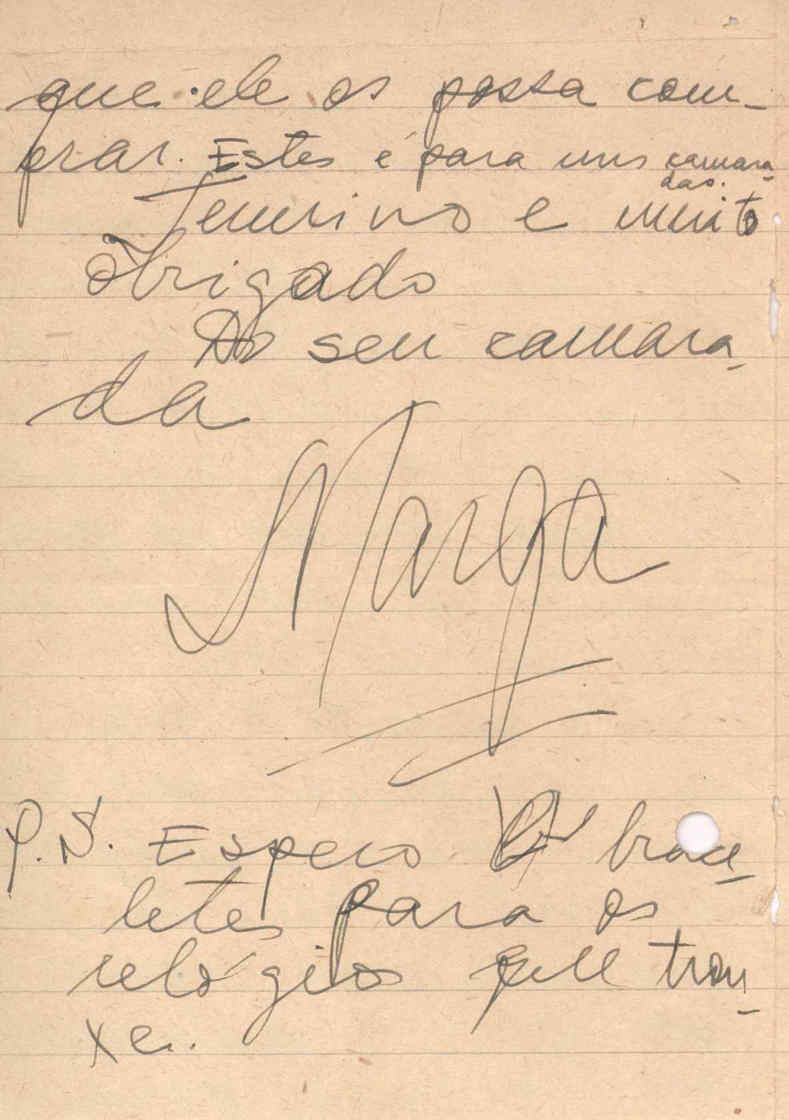 que ele os possa com-
prar. Estes é para uns camara-
das.
Termino e muito
obrigado
Do seu camara-
da
Marga
P.S. Espero brace-
letes para os
relógios que trou-
xe.